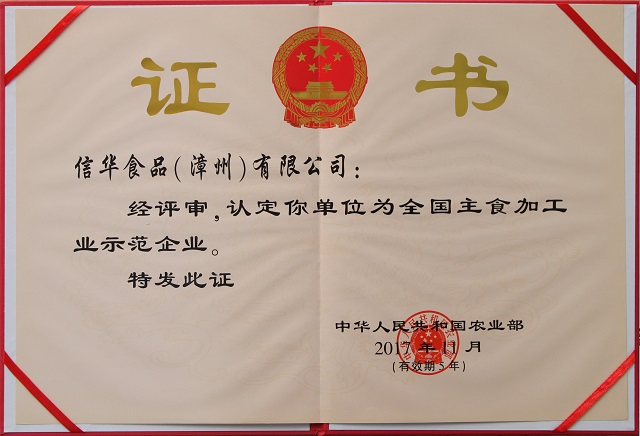 证书
信华食品(漳州)有限公司：
经评审，认定你单位为全国主食加工
业示范企业。
特发此证
中华人民共和国农业部
2017年11月
(有效期5年)